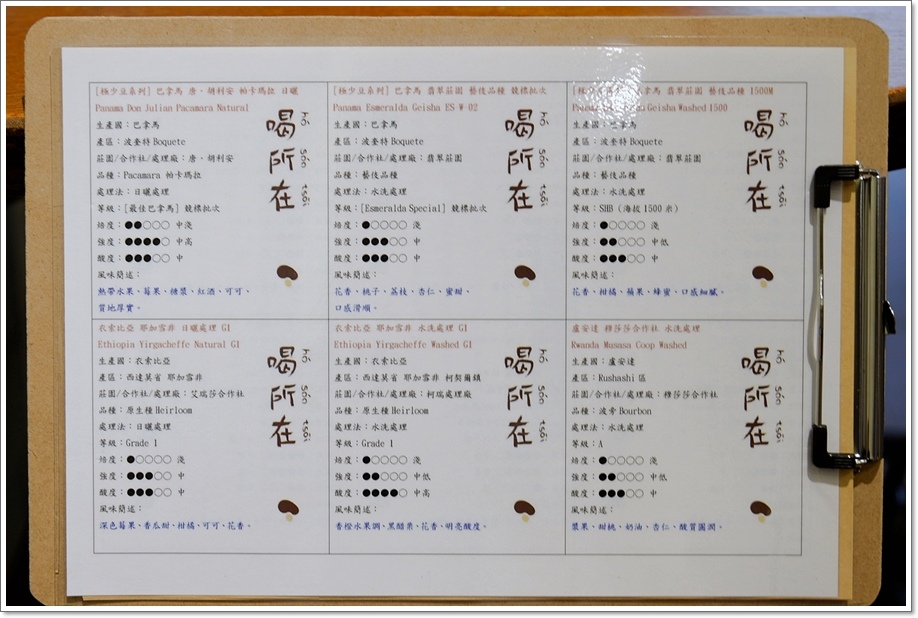 [極少豆系列] 巴拿馬 唐、胡利安 帕卡瑪拉 日曬
Panama Don Julian Pacamara Natural
生產國：巴拿馬
產區：波奎特 Boquete
莊園/合作社/處理廠：唐、胡利安
品種：Pacamara 帕卡瑪拉
處理法：日曬處理
等級：[最佳巴拿馬] 競標批次
焙度：●●○○○ 中淺
強度：●●●●○ 中高
酸度：●●●○○ 中
風味簡述：
熱帶水果、莓果、糖漿、紅酒、可可、
質地厚實。
喝所在
[極少豆系列] 巴拿馬 翡翠莊園 藝伎品種 競標批次
Panama Esmeralda Geisha ES W 02
生產國：巴拿馬
產區：波奎特 Boquete
莊園/合作社/處理廠：翡翠莊園
品種：藝伎品種
處理法：水洗處理
等級：[Esmeralda Special] 競標批次
焙度：●○○○○ 淺
強度：●●●○○ 中
酸度：●●●○○ 中
風味簡述：
花香、桃子、荔枝、杏仁、蜜甜、
口感滑順。
喝所在
巴拿馬 翡翠莊園 藝伎品種 1500M
Geisha Washed 1500
生產國：巴拿馬
產區：波奎特 Boquete
莊園/合作社/處理廠：翡翠莊園
品種：藝伎品種
處理法：水洗處理
等級：SHB (海拔 1500 米)
焙度：●○○○○ 淺
強度：●●○○○ 中低
酸度：●●●○○ 中
風味簡述：
花香、柑橘、蘋果、蜂蜜、口感細膩。
喝所在
衣索比亞 耶加雪菲 日曬處理 G1
Ethiopia Yirgacheffe Natural G1
生產國：衣索比亞
產區：西達莫省 耶加雪菲
莊園/合作社/處理廠：艾瑞莎合作社
品種：原生種 Heirloom
處理法：日曬處理
等級：Grade 1
焙度：●○○○○ 淺
強度：●●●○○ 中
酸度：●●●○○ 中
風味簡述：
深色莓果、香瓜甜、柑橘、可可、花香。
喝所在
衣索比亞 耶加雪菲 水洗處理 G1
Ethiopia Yirgacheffe Washed G1
生產國：衣索比亞
產區：西達莫省 耶加雪菲 柯契爾鎮
莊園/合作社/處理廠：柯瑞處理廠
品種：原生種 Heirloom
處理法：水洗處理
等級：Grade 1
焙度：●○○○○ 淺
強度：●●○○○ 中低
酸度：●●●●○ 中高
風味簡述：
香橙水果調、黑醋栗、花香、明亮酸度。
喝所在
盧安達 穆莎莎合作社 水洗處理
Rwanda Musasa Coop Washed
生產國：盧安達
產區：Rushashi 區
莊園/合作社/處理廠：穆莎莎合作社
品種：波旁 Bourbon
處理法：水洗處理
等級：A
焙度：●○○○○ 淺
強度：●●○○○ 中低
酸度：●●●○○ 中
風味簡述：
漿果、甜桃、奶油、杏仁、酸質圓潤。
喝所在